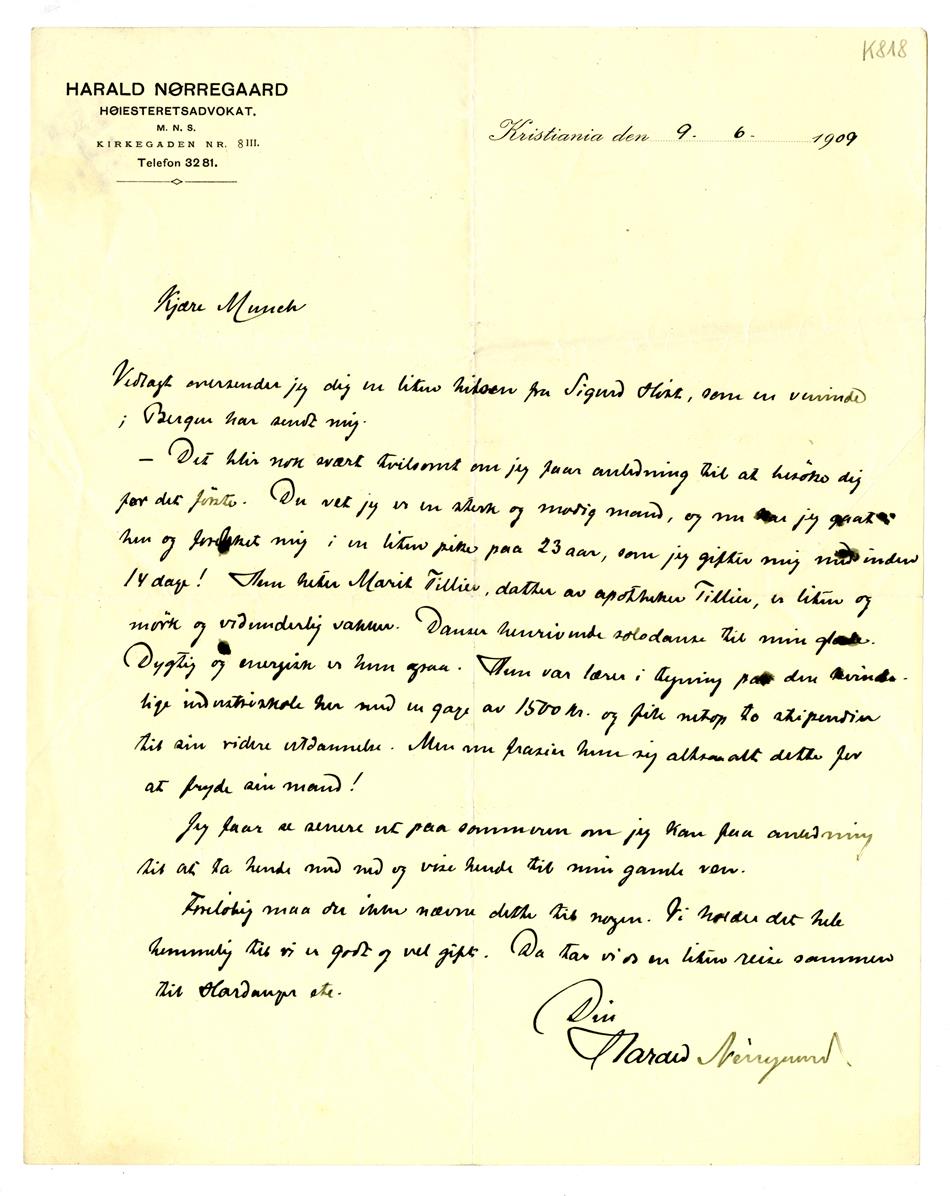 K818
HARALD NØRREGAARD
HØIESTERETSADVOKAT.
M. N. S.
KIRKEGADEN NR. 8 III.
Telefon 3281.
Kristiania den 9. 6. 1909
Kjære Munch
Vedlagt oversender jeg dig en liten hilsen fra Sigurd Høst, som en veninde
i Bergen har sendt mig.
— Det blir nok svært tvilsomt om jeg faar anledning til at besøke dig
for det første. Du vet jeg er en sterk og modig mand, og nu har jeg gaat
hen og forelsket mig i en liten pike paa 23 aar, som jeg gifter mig med inden
14 dage! Hun heter Marit Tillier, datter av apotheker Tillier, er liten og
mørk og vidunderlig vakker. Danser henrivende solodanse til min glæde.
Dygtig og energisk er hun ogsaa. Hun var lærer i tegning paa den kvinde-
lige industriskole her med en gage av 1500 kr. og fik netop to stipendier
til sin videre utdannelse. Men nu frasier hun sig altsaa alt dette for
at fryde sin mand!
Jeg faar se senere ut paa sommeren om jeg kan faa anledning
til at ta hende med ned og vise hende til min gamle ven.
Foreløbig maa du ikke nævne dette til nogen. Vi holder det hele
hemmelig til vi er godt og vel gift. Da tar vi os en liten reise sammen
til Hardanger etc.
Din
Harald Nørregaard.